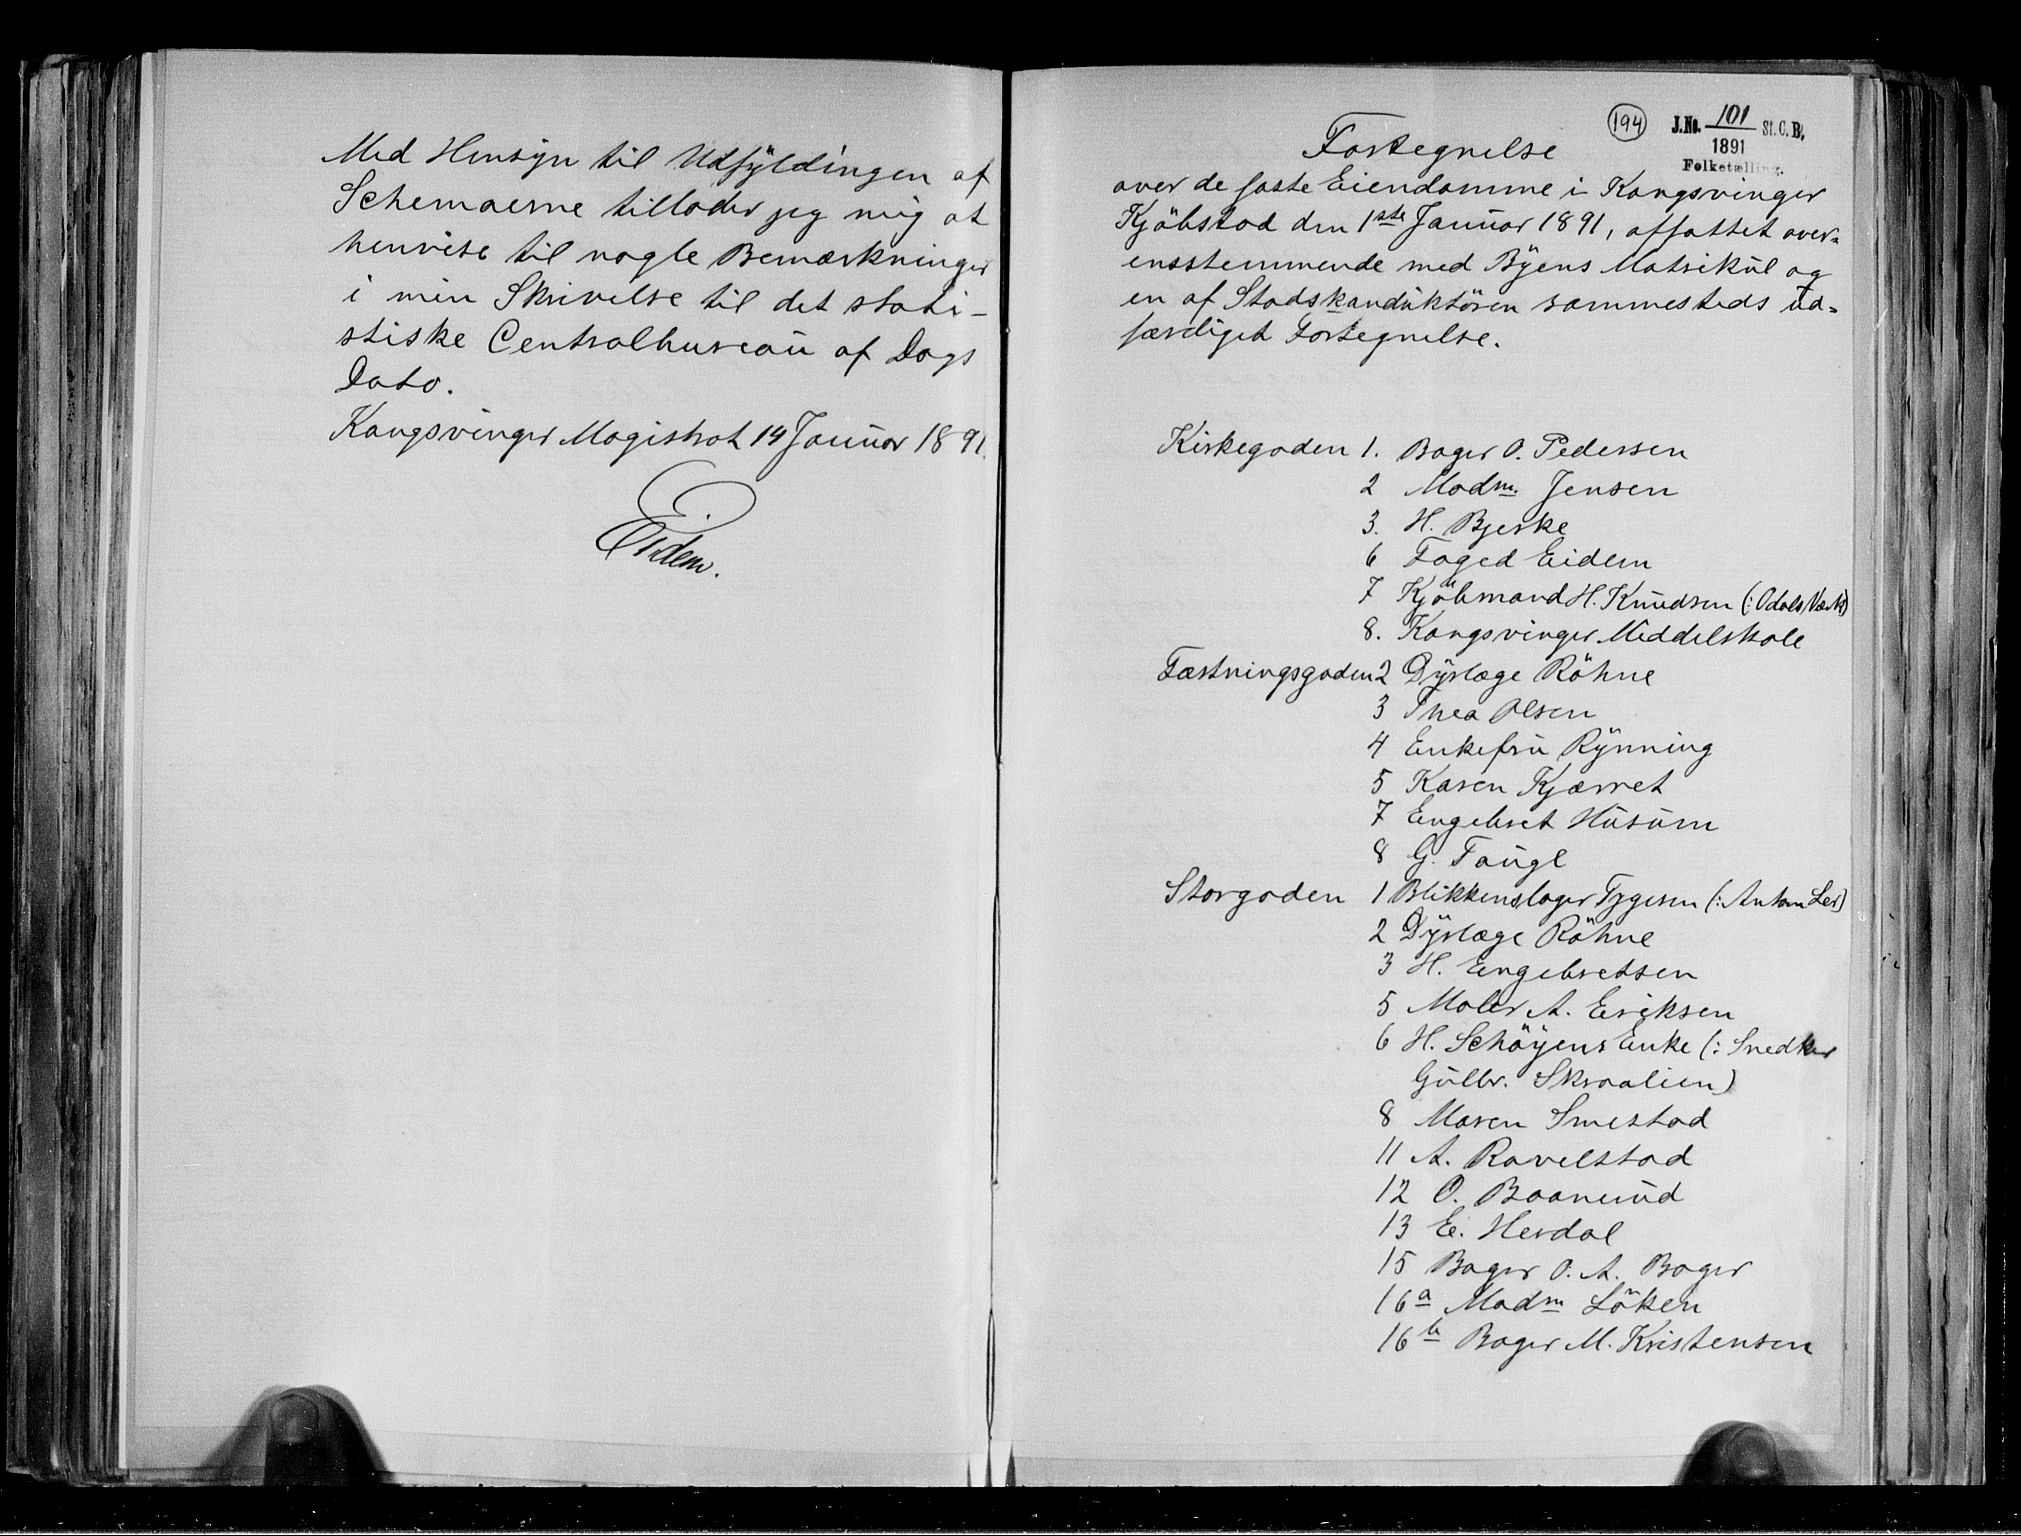 Med Hensyn til Udfyldingen af
Schemaerne tillader jeg mig at
henvise til nogle Bemærkninger
i min Skrivelse til det stati-
stiske Centralbureau af Dags
Dato.
Kongsvinger Magistrat 14 Januar 1891.
Eidem.
194
J.No. 101 St.C.B.
1891
Folketælling.
Fortegnelse
over de faste Eiendomme i Kongsvinger
Kjöbstad den 1ste Januar 1891, affattet over-
ensstemmende med Byens Matrikul og
en af Stadskonduktören sammesteds ud-
færdiget Fortegnelse.
Kirkegaden 1. Bager O. Pedersen
2 Madm. Jensen
3. H. Bjerke
6 Foged Eidem
7 Kjöbmand H. Knudsen (: Odals Værk)
8. Kongsvinger Middelskole
Fæstningsgaden 2 Dyrlæge Röhne
3 Thea Olsen
4 Enkefru Rynning
5 Karen Kjærret
7 Engebret Husum
8 G. Faugl
Storgaden 1 Blikkenslager Tygesen (: Anton Lie)
2 Dyrlæge Röhne
3 H. Engebretsen
5 Maler A. Eriksen
6 H. Schöyens Enke (: Snedker
Gulbr. Skraalien)
8 Maren Smestad
11 A. Ravelstad
12 O. Baanerud
13 E. Herdal
15 Bager O. A. Bager
16a Madm Löken
16b Bager M. Kristensen